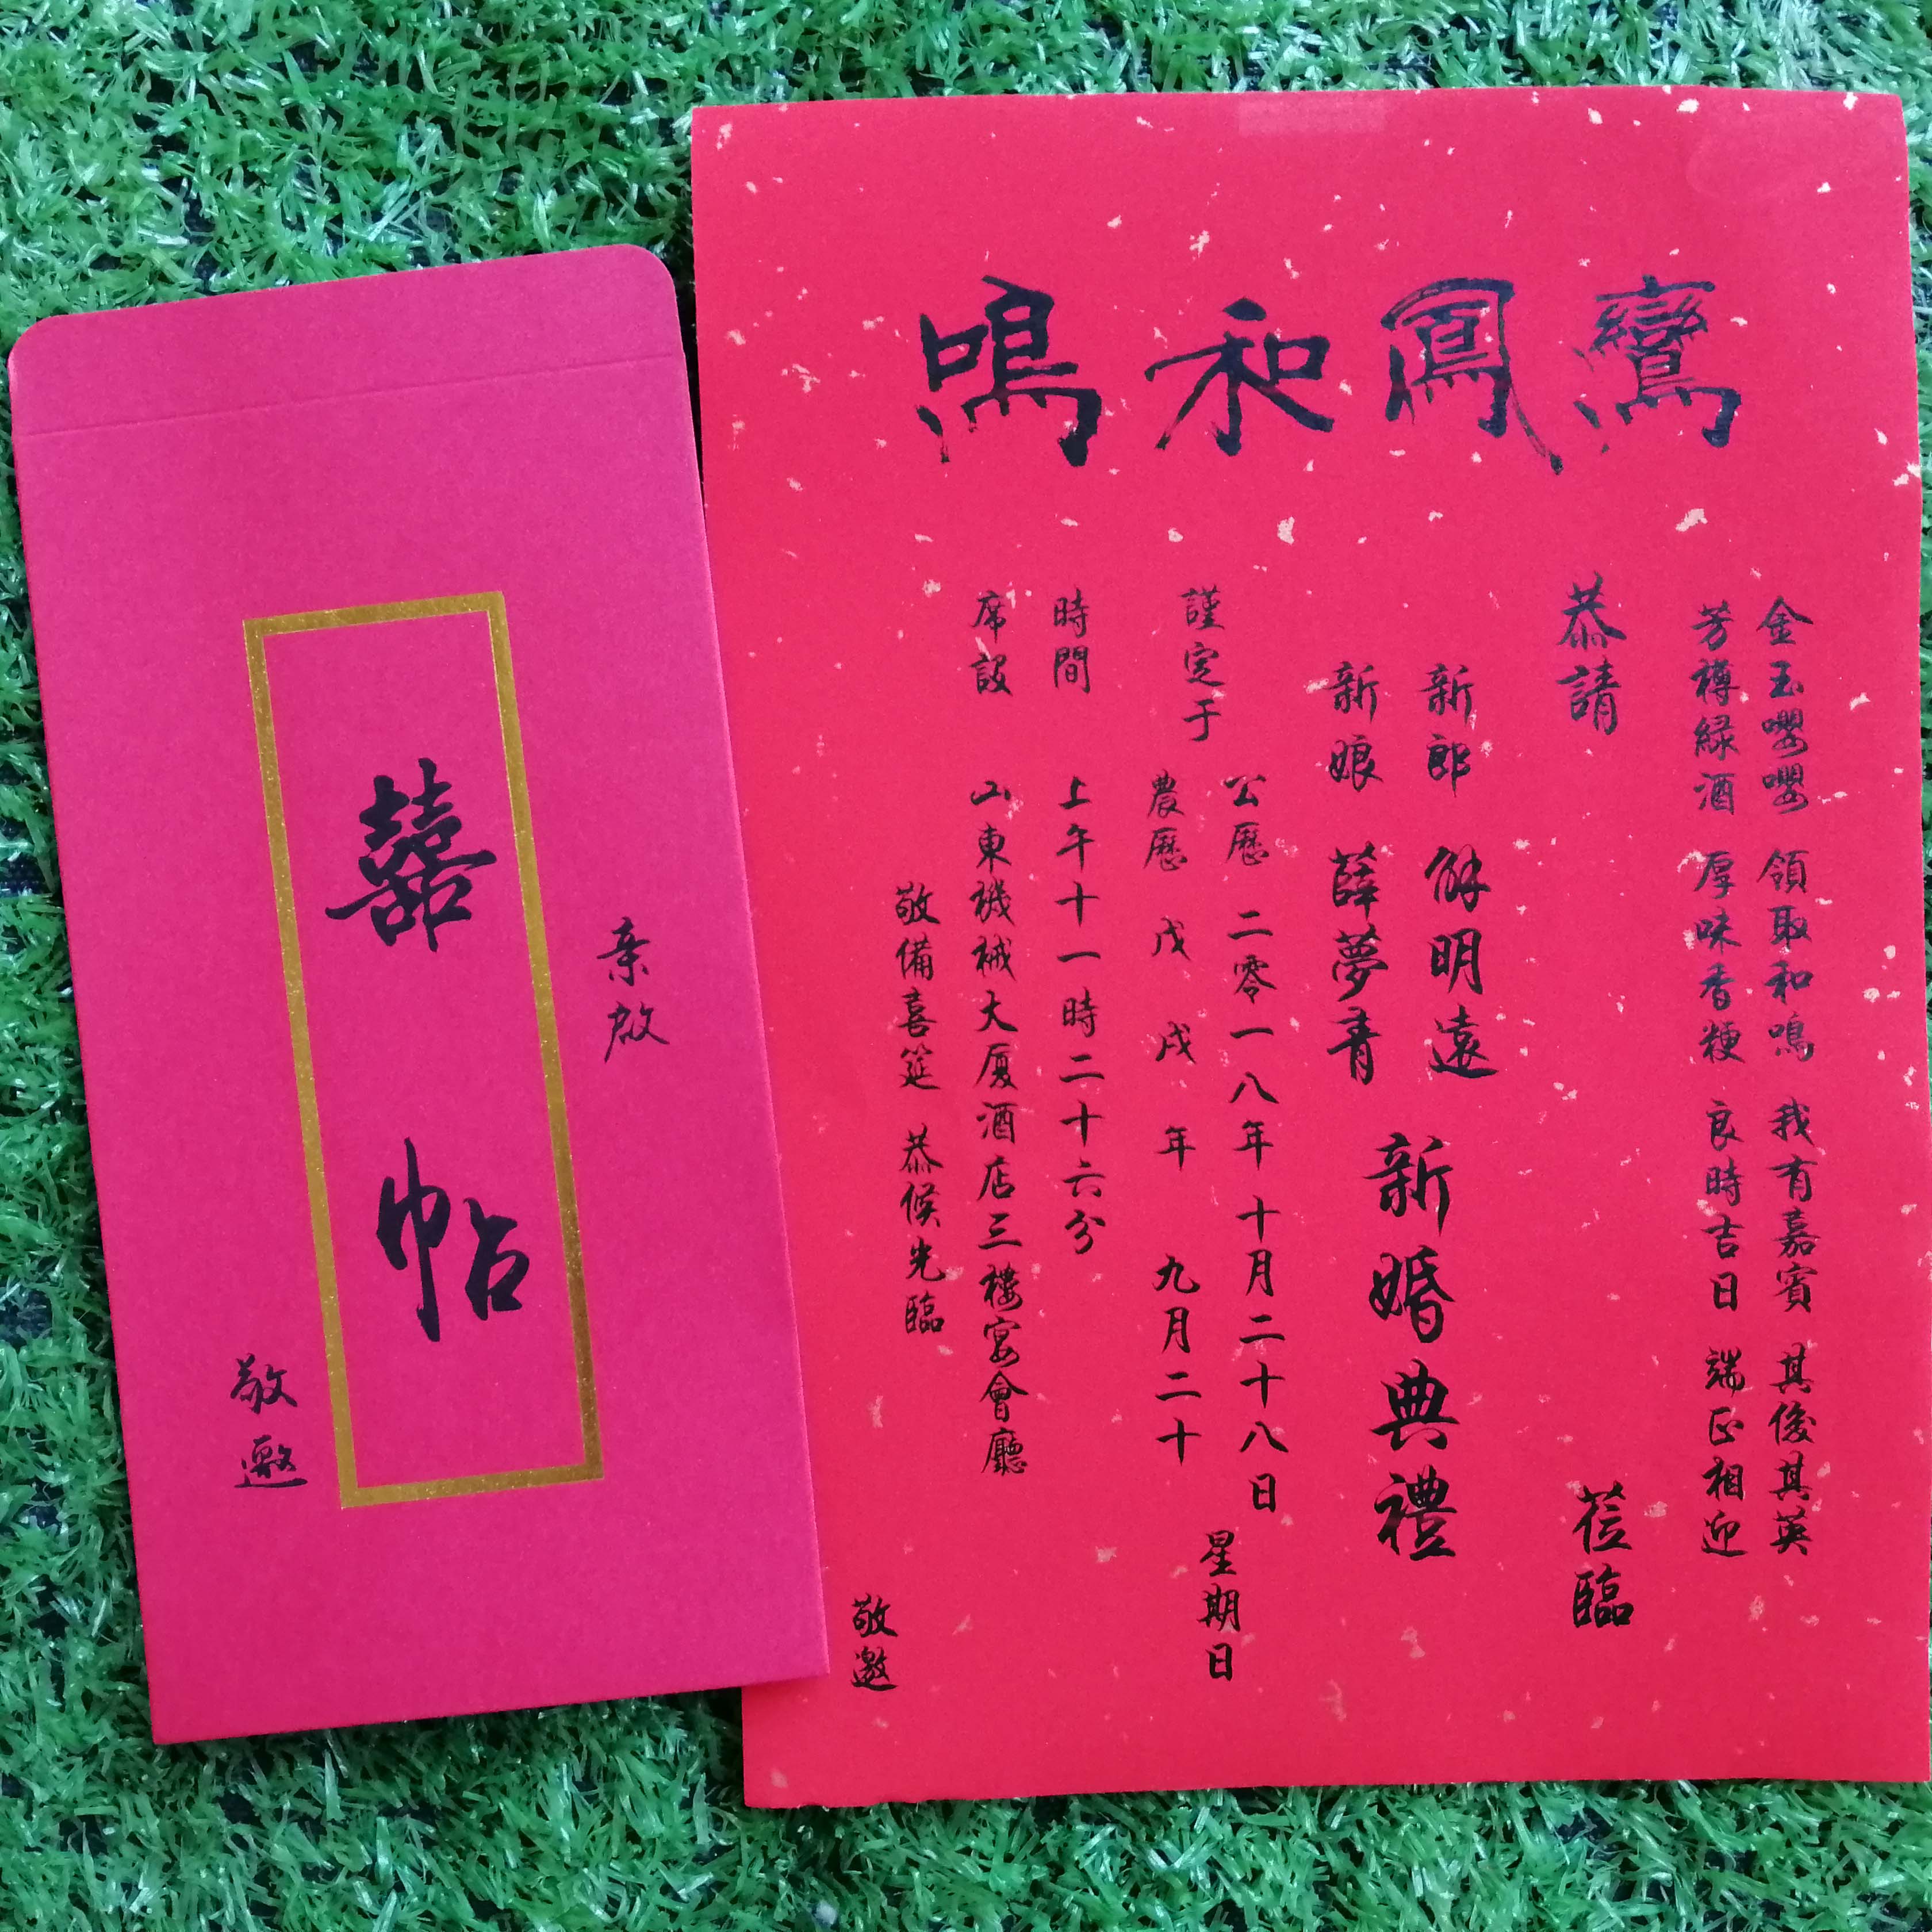 囍帖
亲啟
敬邀
鸞鳳和鳴
金玉嚶嚶 領取和鳴 我有嘉賓 其俊其英
芳樽緑酒 厚味香粳 良時吉日 端正相迎
恭請 莅臨
新郎 解明遠
新娘 薛夢青
新婚典禮
謹定于
公歷 二零一八年十月二十八日
農歷 戊戌年 九月二十
星期日
時間 上午十一時二十六分
席設 山東機械大厦酒店三樓宴會廳
敬備喜筵 恭候光臨
敬邀